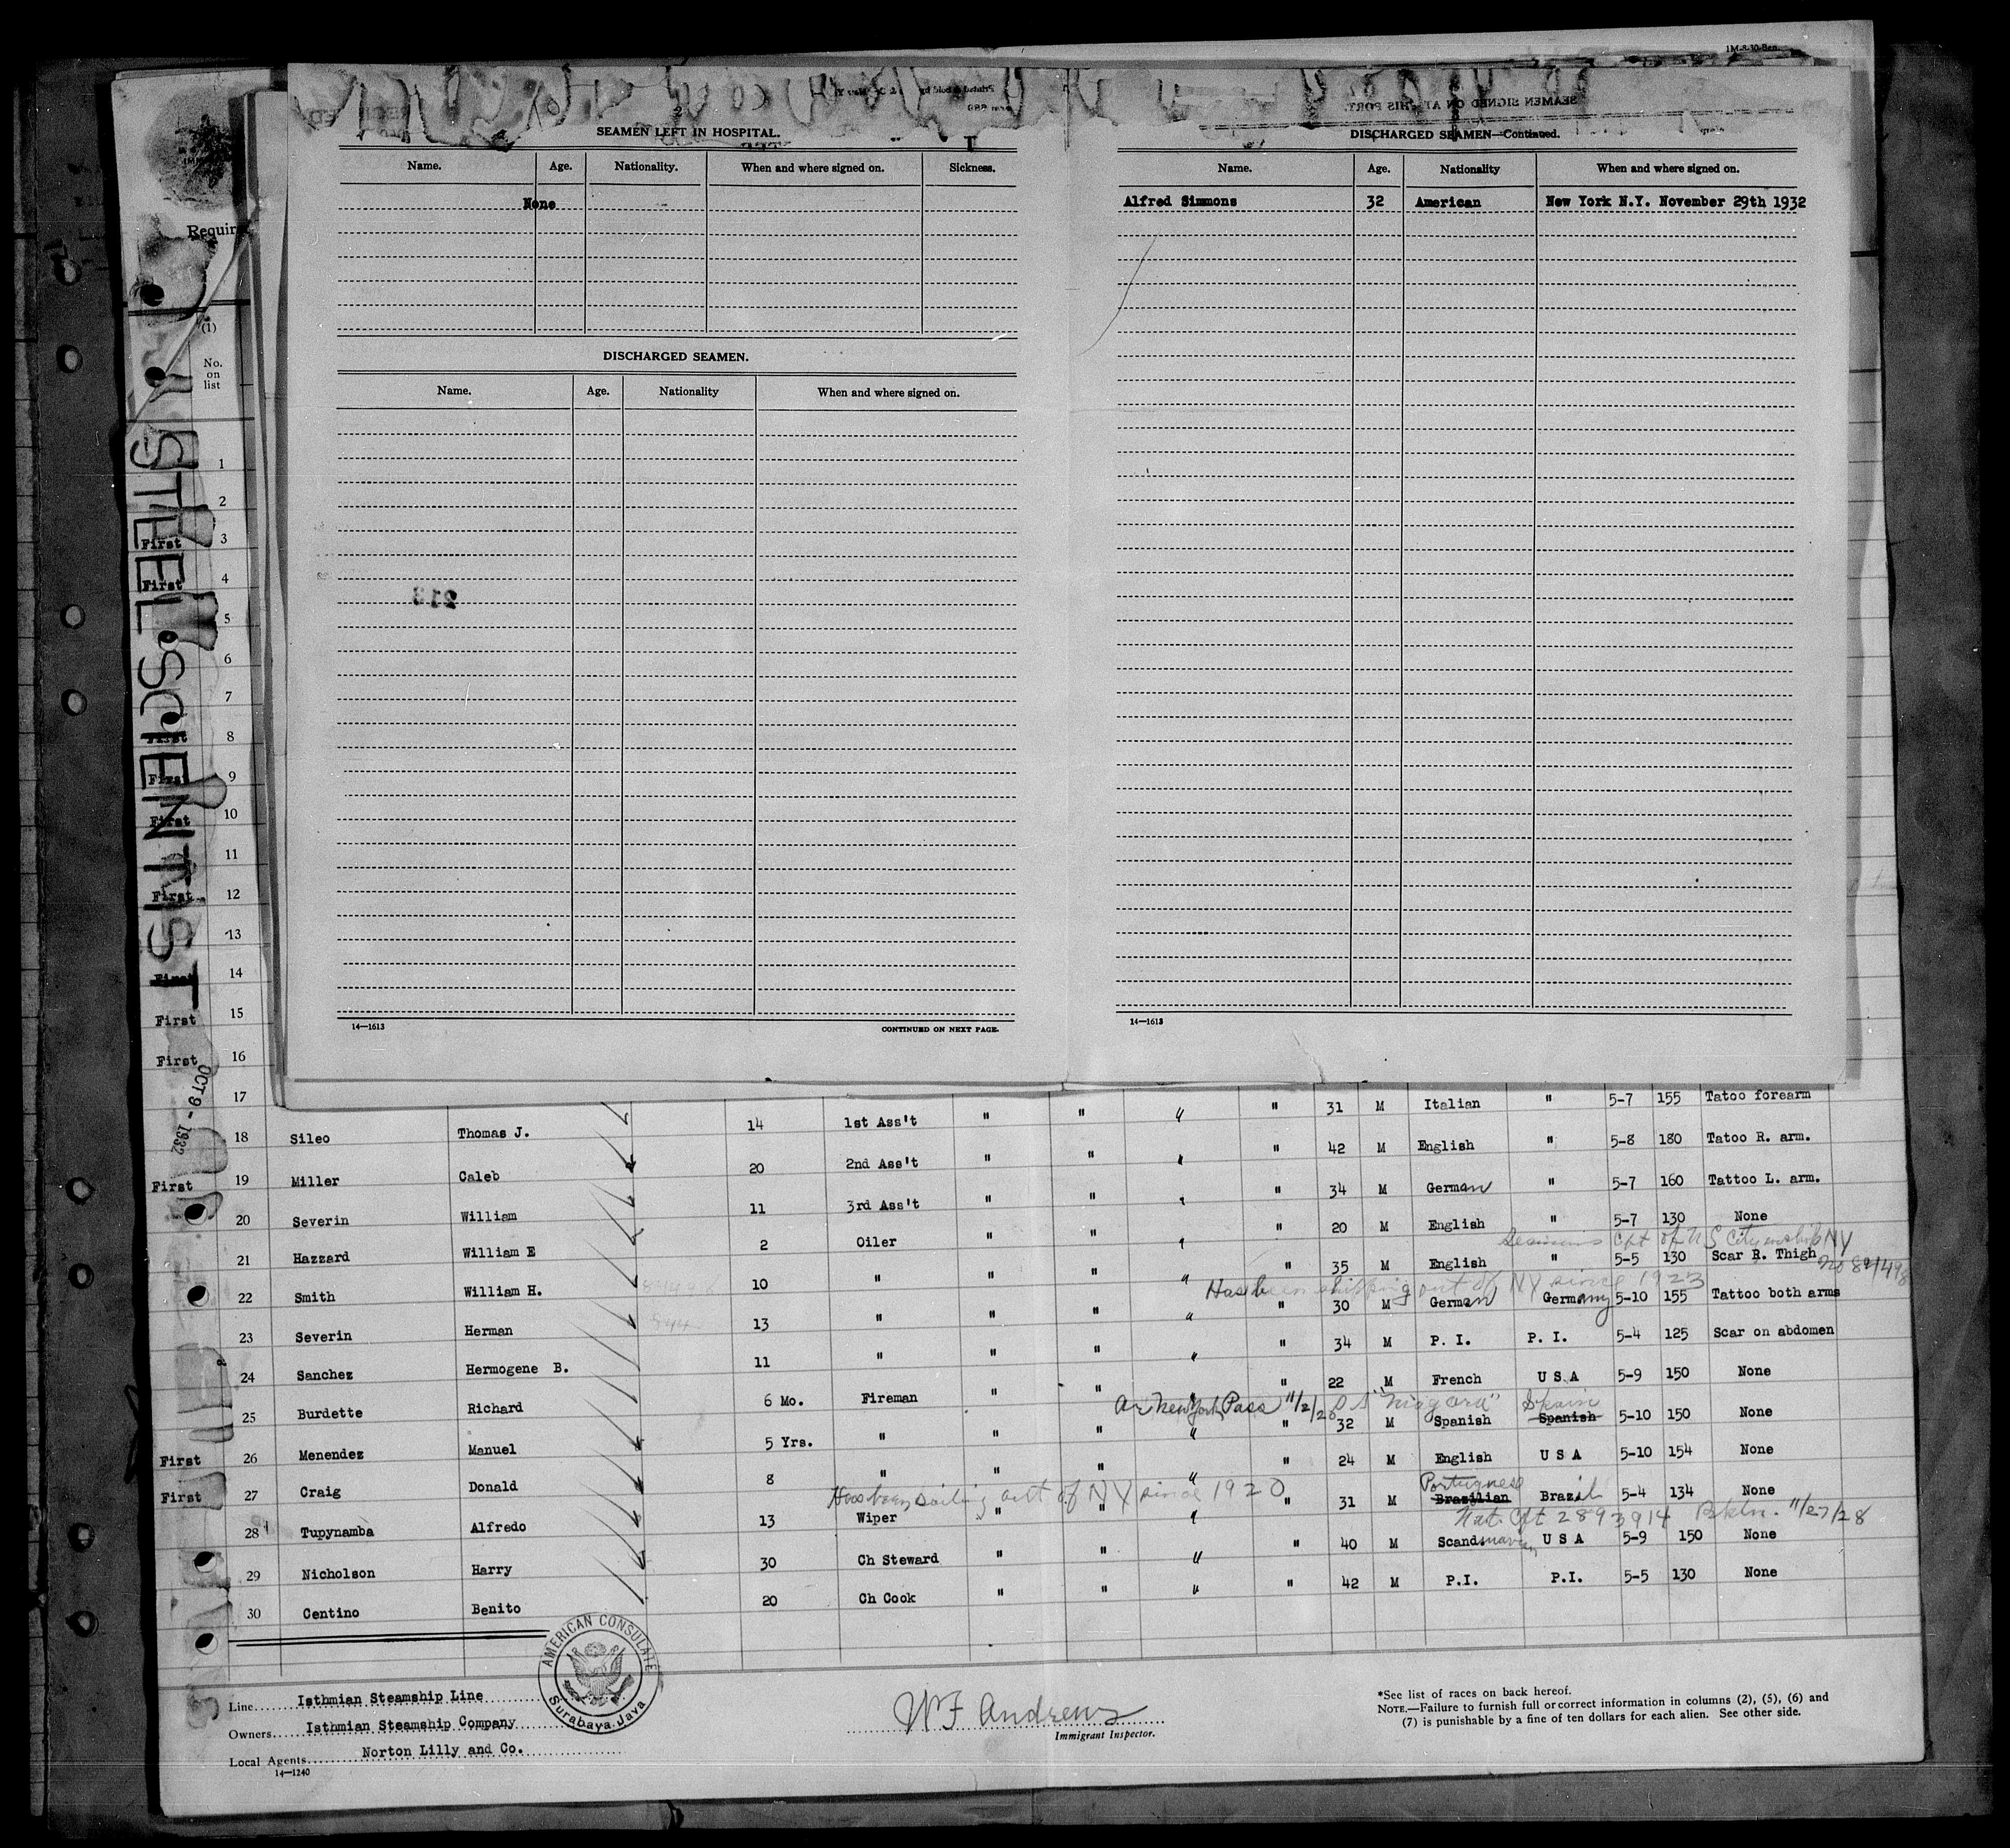 1M-8-30-Ben.
SEAMEN SIGNED ON AT THIS PORT.
SEAMEN LEFT IN HOSPITAL.
Name. Age. Nationality. When and where signed on. Sickness.
None
DISCHARGED SEAMEN.
Name. Age. Nationality When and where signed on.
213
14—1613 CONTINUED ON NEXT PAGE.
DISCHARGED SEAMEN—Continued.
Name. Age. Nationality When and where signed on.
Alfred Simmons 32 American New York N.Y. November 29th 1932
14—1613
STEEL SCIENTIST
OCT 9 - 1932
(1)
No. on list
1
2
First 3
First 4
5
6
7
First 8
First 9
First 10
11
First 12
13
First 14
First 15
First 16
17
18 Sileo Thomas J. 14 1st Ass't " " " " 31 M Italian " 5-7 155 Tatoo forearm
First 19 Miller Caleb 20 2nd Ass't " " " " 42 M English " 5-8 180 Tatoo R. arm.
20 Severin William 11 3rd Ass't " " " " 34 M German " 5-7 160 Tattoo L. arm.
21 Hazzard William E 2 Oiler " " " " 20 M English " 5-7 130 None
Seamans Cft of U S Citizenship NY
22 Smith William H. 10 " " " " " 35 M English " 5-5 130 Scar R. Thigh
Has been shipping out of NY since 1923
23 Severin Herman 13 " " " " " 30 M German Germany 5-10 155 Tattoo both arms
24 Sanchez Hermogene B. 11 " " " " " 34 M P. I. P. I. 5-4 125 Scar on abdomen
25 Burdette Richard 6 Mo. Fireman " " " " 22 M French U S A 5-9 150 None
Ar New York Pass 11/2/20 S S "Niagara" Spain
First 26 Menendez Manuel 5 Yrs. " " " " " 32 M Spanish Spanish 5-10 150 None
First 27 Craig Donald 8 " " " " " 24 M English U S A 5-10 154 None
Has been sailing out of NY since 1920 Portuguese
28 Tupynamba Alfredo 13 Wiper " " " " 31 M Brazilian Brazil 5-4 134 None
Nat. Cft 2893914 Bkln. 11/27/28
29 Nicholson Harry 30 Ch Steward " " " " 40 M Scandinavian U S A 5-9 150 None
30 Centino Benito 20 Ch Cook " " " " 42 M P.I. P.I. 5-5 130 None
AMERICAN CONSULATE
Surabaya, Java
Line Isthmian Steamship Line
Owners Isthmian Steamship Company
Local Agents Norton Lilly and Co.
14—1240
W F Andrews
Immigrant Inspector.
*See list of races on back hereof.
NOTE.—Failure to furnish full or correct information in columns (2), (5), (6) and
(7) is punishable by a fine of ten dollars for each alien. See other side.